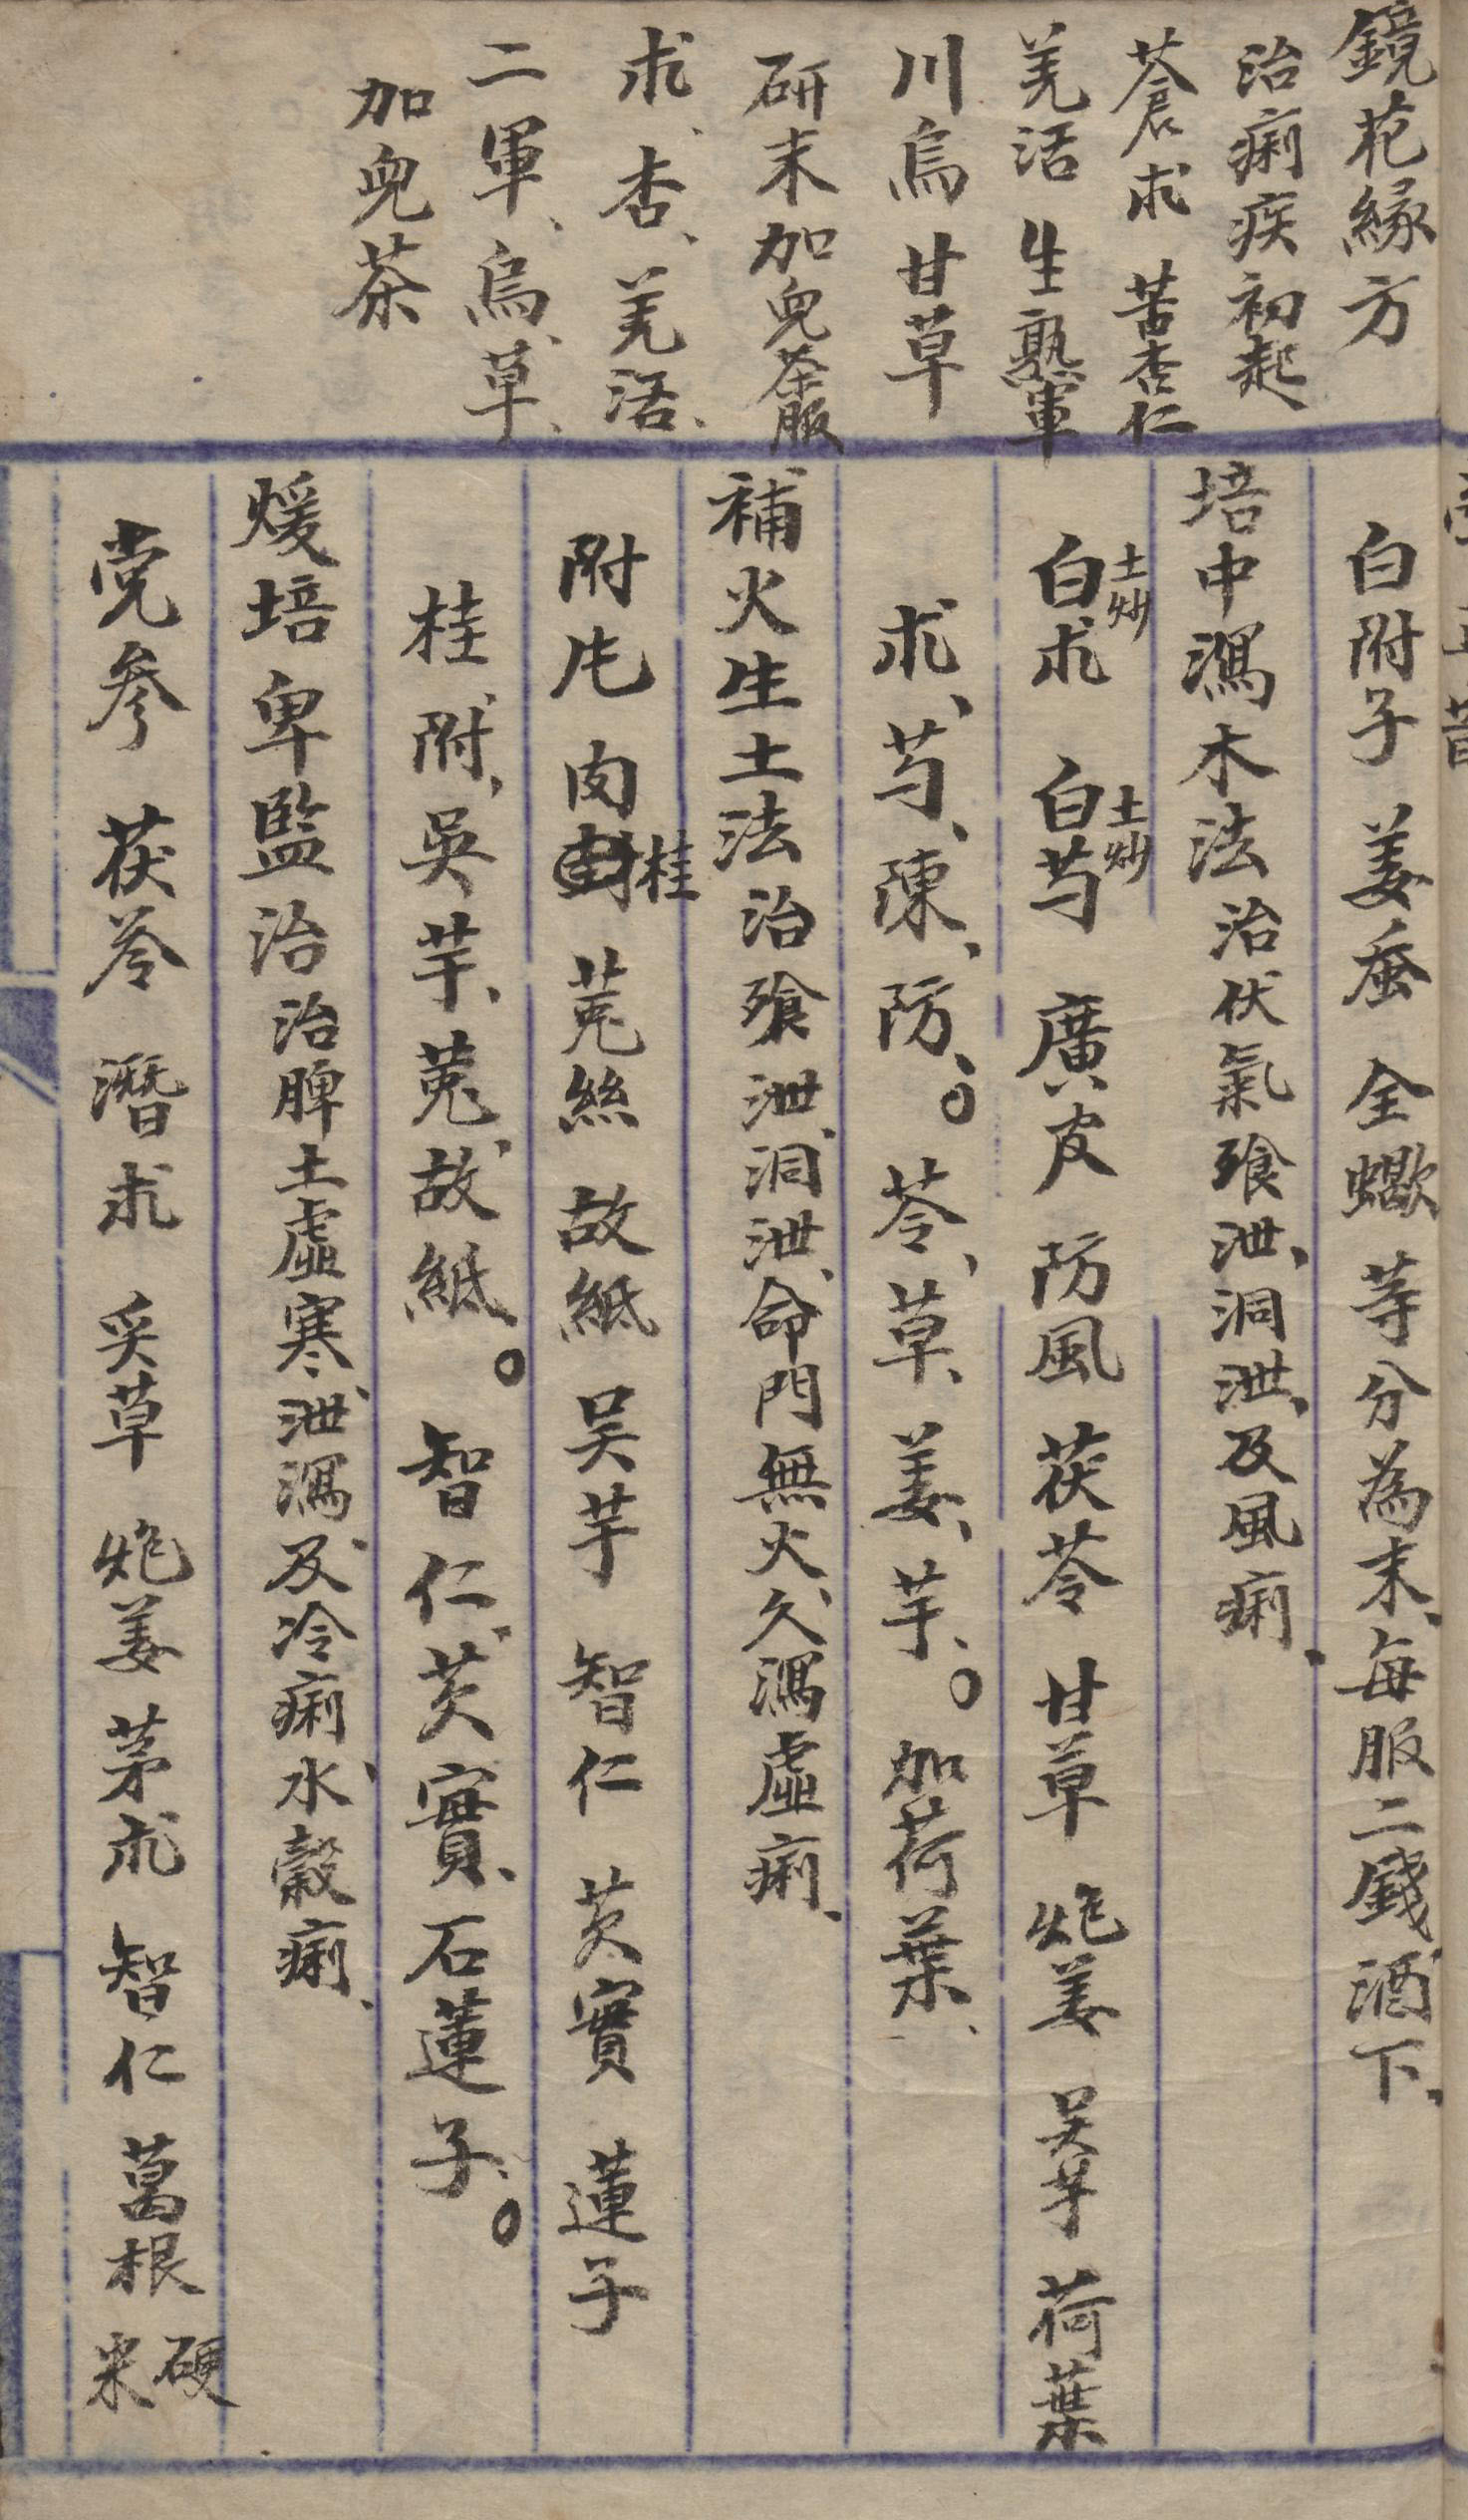 鏡花緣方
治痢疾初起
蒼朮 苦杏仁
羌活 生熟軍
川烏 甘草
研末加兒茶服
朮、杏、羌活、
二軍、烏、草、
加兒茶
白附子 姜蚕 全蠍 等分為末、每服二錢、酒下、
培中瀉木法 治伏氣飱泄、洞泄、及風痢、
白朮土炒 白芍土炒 廣皮 防風 茯苓 甘草 炮姜 吴芋 荷葉
朮、芍、陳、防、。苓、草、姜、芋、。加荷葉、
補火生土法 治飱泄、洞泄、命門無火、久瀉虛痢、
附片 肉桂 菟絲 故紙 吴芋 智仁 芡實 蓮子
桂、附、吳芋、菟、故紙。智仁、芡實、石蓮子、。
煖培卑監治 治脾土虛寒、泄瀉、及冷痢、水穀痢、
党参 茯苓 潛朮 炙草 炮姜 茅朮 智仁 葛根 硬米